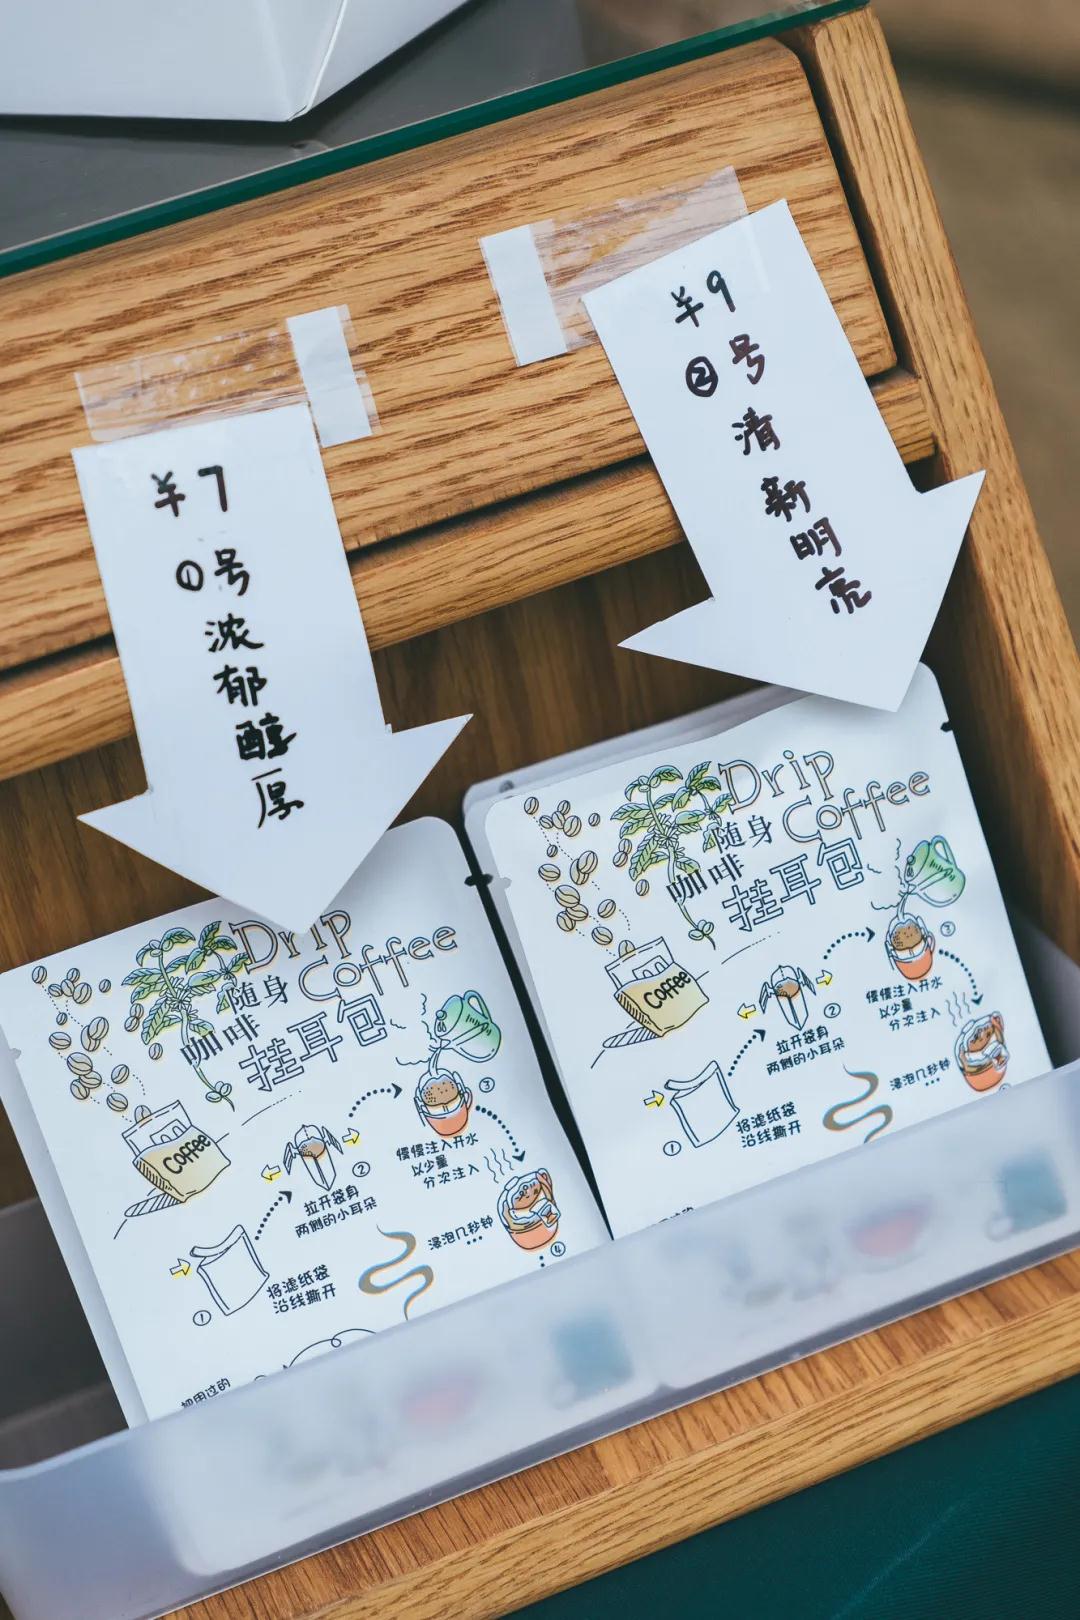 ¥7
①号
浓
郁
醇
厚
¥9
②号
清
新
明
亮
Drip
Coffee
随身
咖啡
挂耳包
Coffee
③
慢慢注入开水
以少量
分次注入
②
拉开袋身
两侧的小耳朵
浸泡几秒钟
④
①
将滤纸袋
沿线撕开
把用过的
Drip
Coffee
随身
咖啡
挂耳包
Coffee
③
慢慢注入开水
以少量
分次注入
②
拉开袋身
两侧的小耳朵
浸泡几秒钟
①
将滤纸袋
沿线撕开